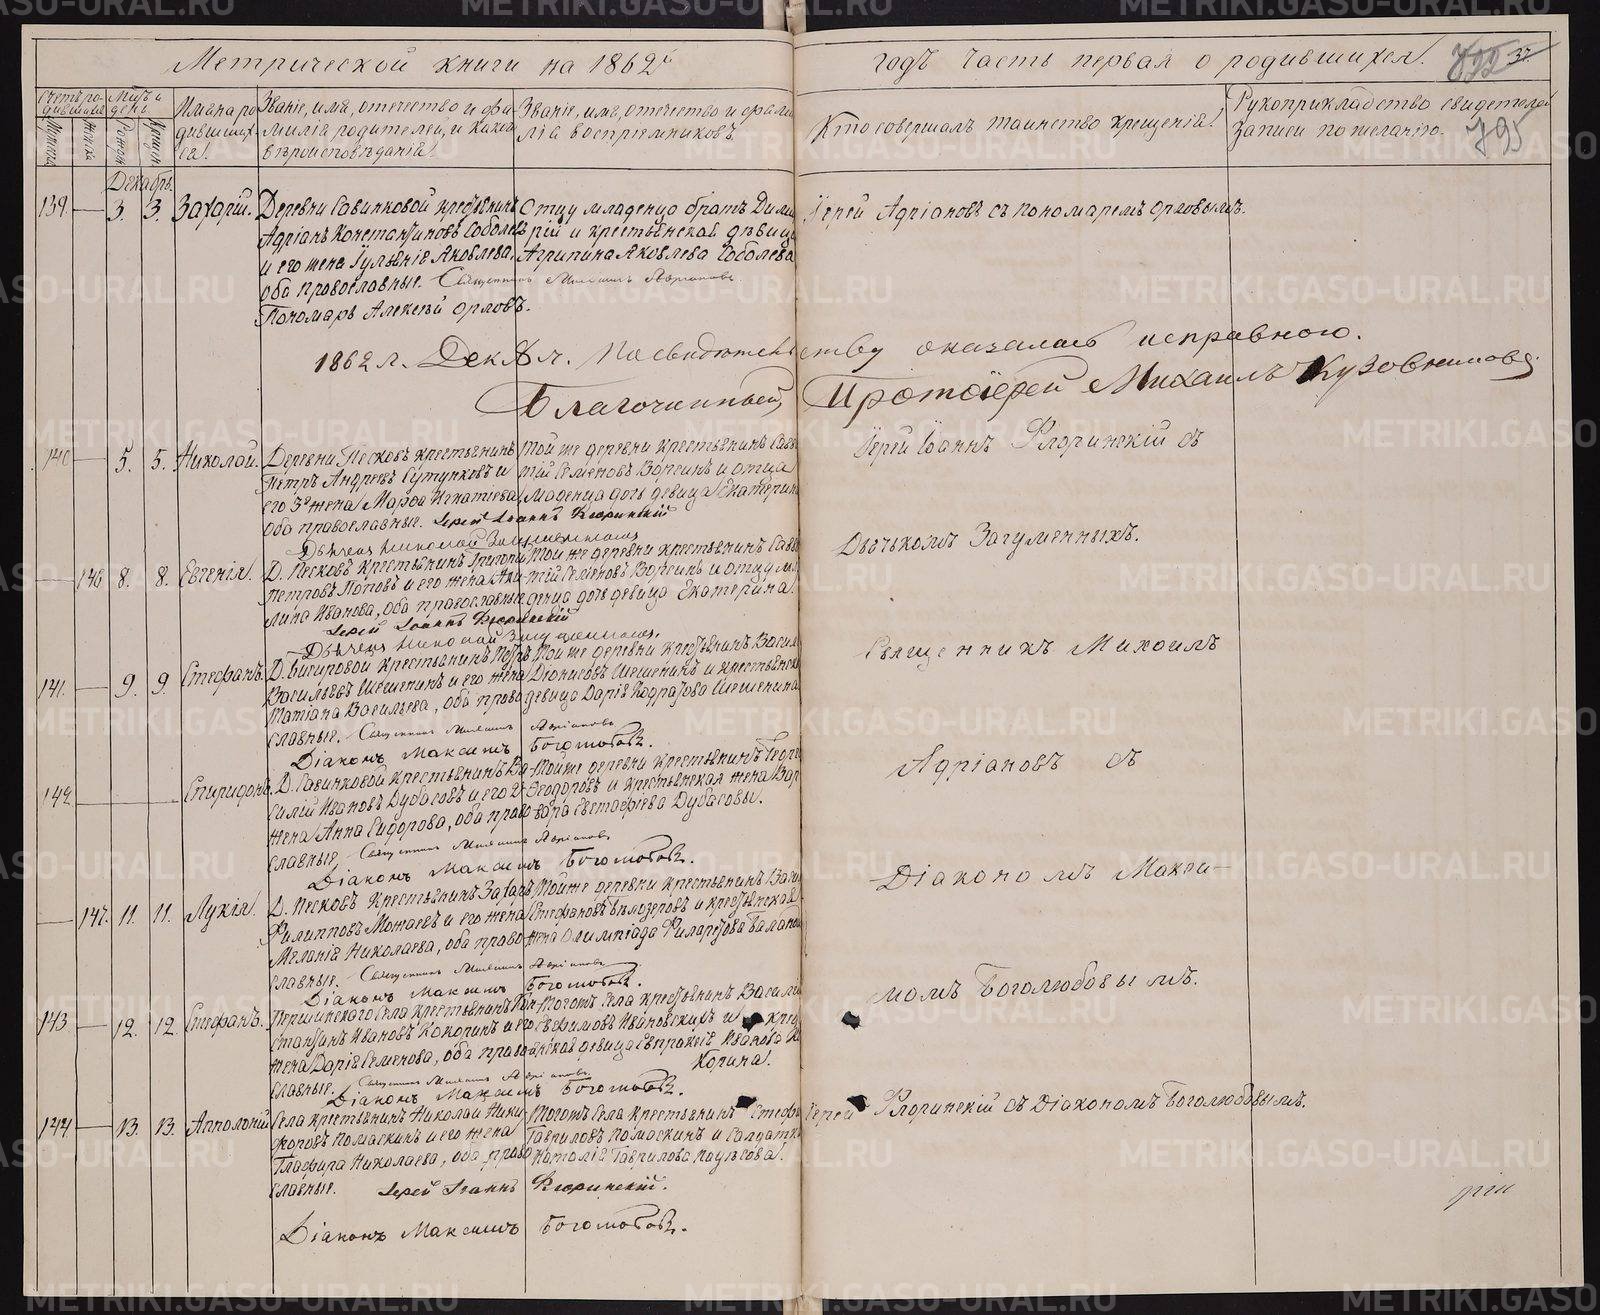 Метрической книги на 1862й
годъ часть первая о родившихся.
37
795
Счетъ родившихся
Мѣсяцъ и день
Имена родившихся.
Званіе, имя, отечество и фамилія родителей, и какого вѣроисповѣданія.
Званіе, имя, отечество и фамилія воспріемниковъ.
Кто совершалъ таинство крещенія.
Рукоприкладство свидетелей записи по желанію.
Декабрь.
139. 3. 3. Захарій.
Деревни Савинковой крестьянинъ
Адріанъ Константиновъ Соболевъ
и его жена Іульянія Яковлева,
оба православные. Священникъ Михаилъ Адріановъ
Пономарь Алексѣй Орловъ.
Отцу младенца братъ Димит
рій и крестьянская дѣвица
Агрипина Яковлева Соболева
Іерей Адріановъ съ пономаремъ Орловымъ.
1862 г. Дек. 8 ч. По свидѣтельству оказалась исправною.
Благочинный, Протоіерей Михаилъ Кузовниковъ
140 5. 5. Николай.
Деревни Песковъ крестьянинъ
Петръ Андреевъ Сутунковъ и
его 3я жена Марфа Игнатиева,
оба православные. Іерей Іоаннъ Флоринскій
Дьячекъ Николай Загуменныхъ
Той же деревни крестьянинъ Савва
тій Семеновъ Ворсинъ и отца
младенца дочь девица Екатерина
Іерей Іоаннъ Флоринскій съ
Дьячкомъ Загуменныхъ.
146 8. 8. Евгенія.
Д. Песковъ крестьянинъ Григорій
Петровъ Поповъ и его жена Аки
лина Иванова, оба православные
Іерей Іоаннъ Флоринскій
Дьячекъ Николай Загуменныхъ.
Той же деревни крестьянинъ Савва
тій Семеновъ Ворсинъ и отцу мла
денца дочь девица Екатерина.
141. 9. 9. Стефанъ.
крестьянинъ Петръ
Васильевъ Шешенинъ и его жена
Татіана Васильева, оба право
славные. Священникъ Михаилъ Адріановъ
Діаконъ Максимъ Боголюбовъ.
Той же деревни крестьянинъ Васил
Діонисовъ Шешенинъ и крестьянская
девица Дарія Кодратова Шешенина
Священникъ Михаилъ
142. Спиридонъ.
Д. Савинковой крестьянинъ Ва
силій Ивановъ Дубасовъ и его 2я
жена Анна Сидорова, оба право
славные. Священникъ Михаилъ Адріановъ
Діаконъ Максимъ Боголюбовъ.
Той же деревни крестьянинъ Георгій
Феодоровъ и крестьянская жена Вар
вара Евстафіева Дубасовы.
Адріановъ съ
147. 11. 11. Лукія.
Д. Песковъ крестьянинъ Захаръ
Филипповъ Можаевъ и его жена
Меланія Николаева, оба право
славные. Священникъ Михаилъ Адріановъ
Діаконъ Максимъ Боголюбовъ.
Той же деревни крестьянинъ Васи
Стефановъ Бѣлозеровъ и крестьянская
жена Олимпіада Филаретова
Діакономъ Макси-
момъ Боголюбовымъ.
143 12. 12. Стефанъ.
Першинского села крестьянинъ Кон
стантинъ Ивановъ Кокоринъ и его
жена Дарія Семенова, оба право
славные. Священникъ Михаилъ Адріановъ
Діаконъ Максимъ Боголюбовъ.
Тогожъ села крестьянинъ Василій
Евфимовъ Ивановскихъ и крес
янская девица Евпраксія Иванова Ко
корина.
144 13. 13. Апполоній
Села крестьянинъ Николай Ники
форовъ Помаскинъ и его жена
Глафира Николаева, оба право
славные. Іерей Іоаннъ Флоринскій.
Діаконъ Максимъ Боголюбовъ.
Тогожъ села крестьянинъ Стефа
Гавриловъ Помаскинъ и солдатка
Наталія Гаврилова
Іерей Флоринскій съ Діакономъ Боголюбовымъ.
METRIKI.GASO-URAL.RU